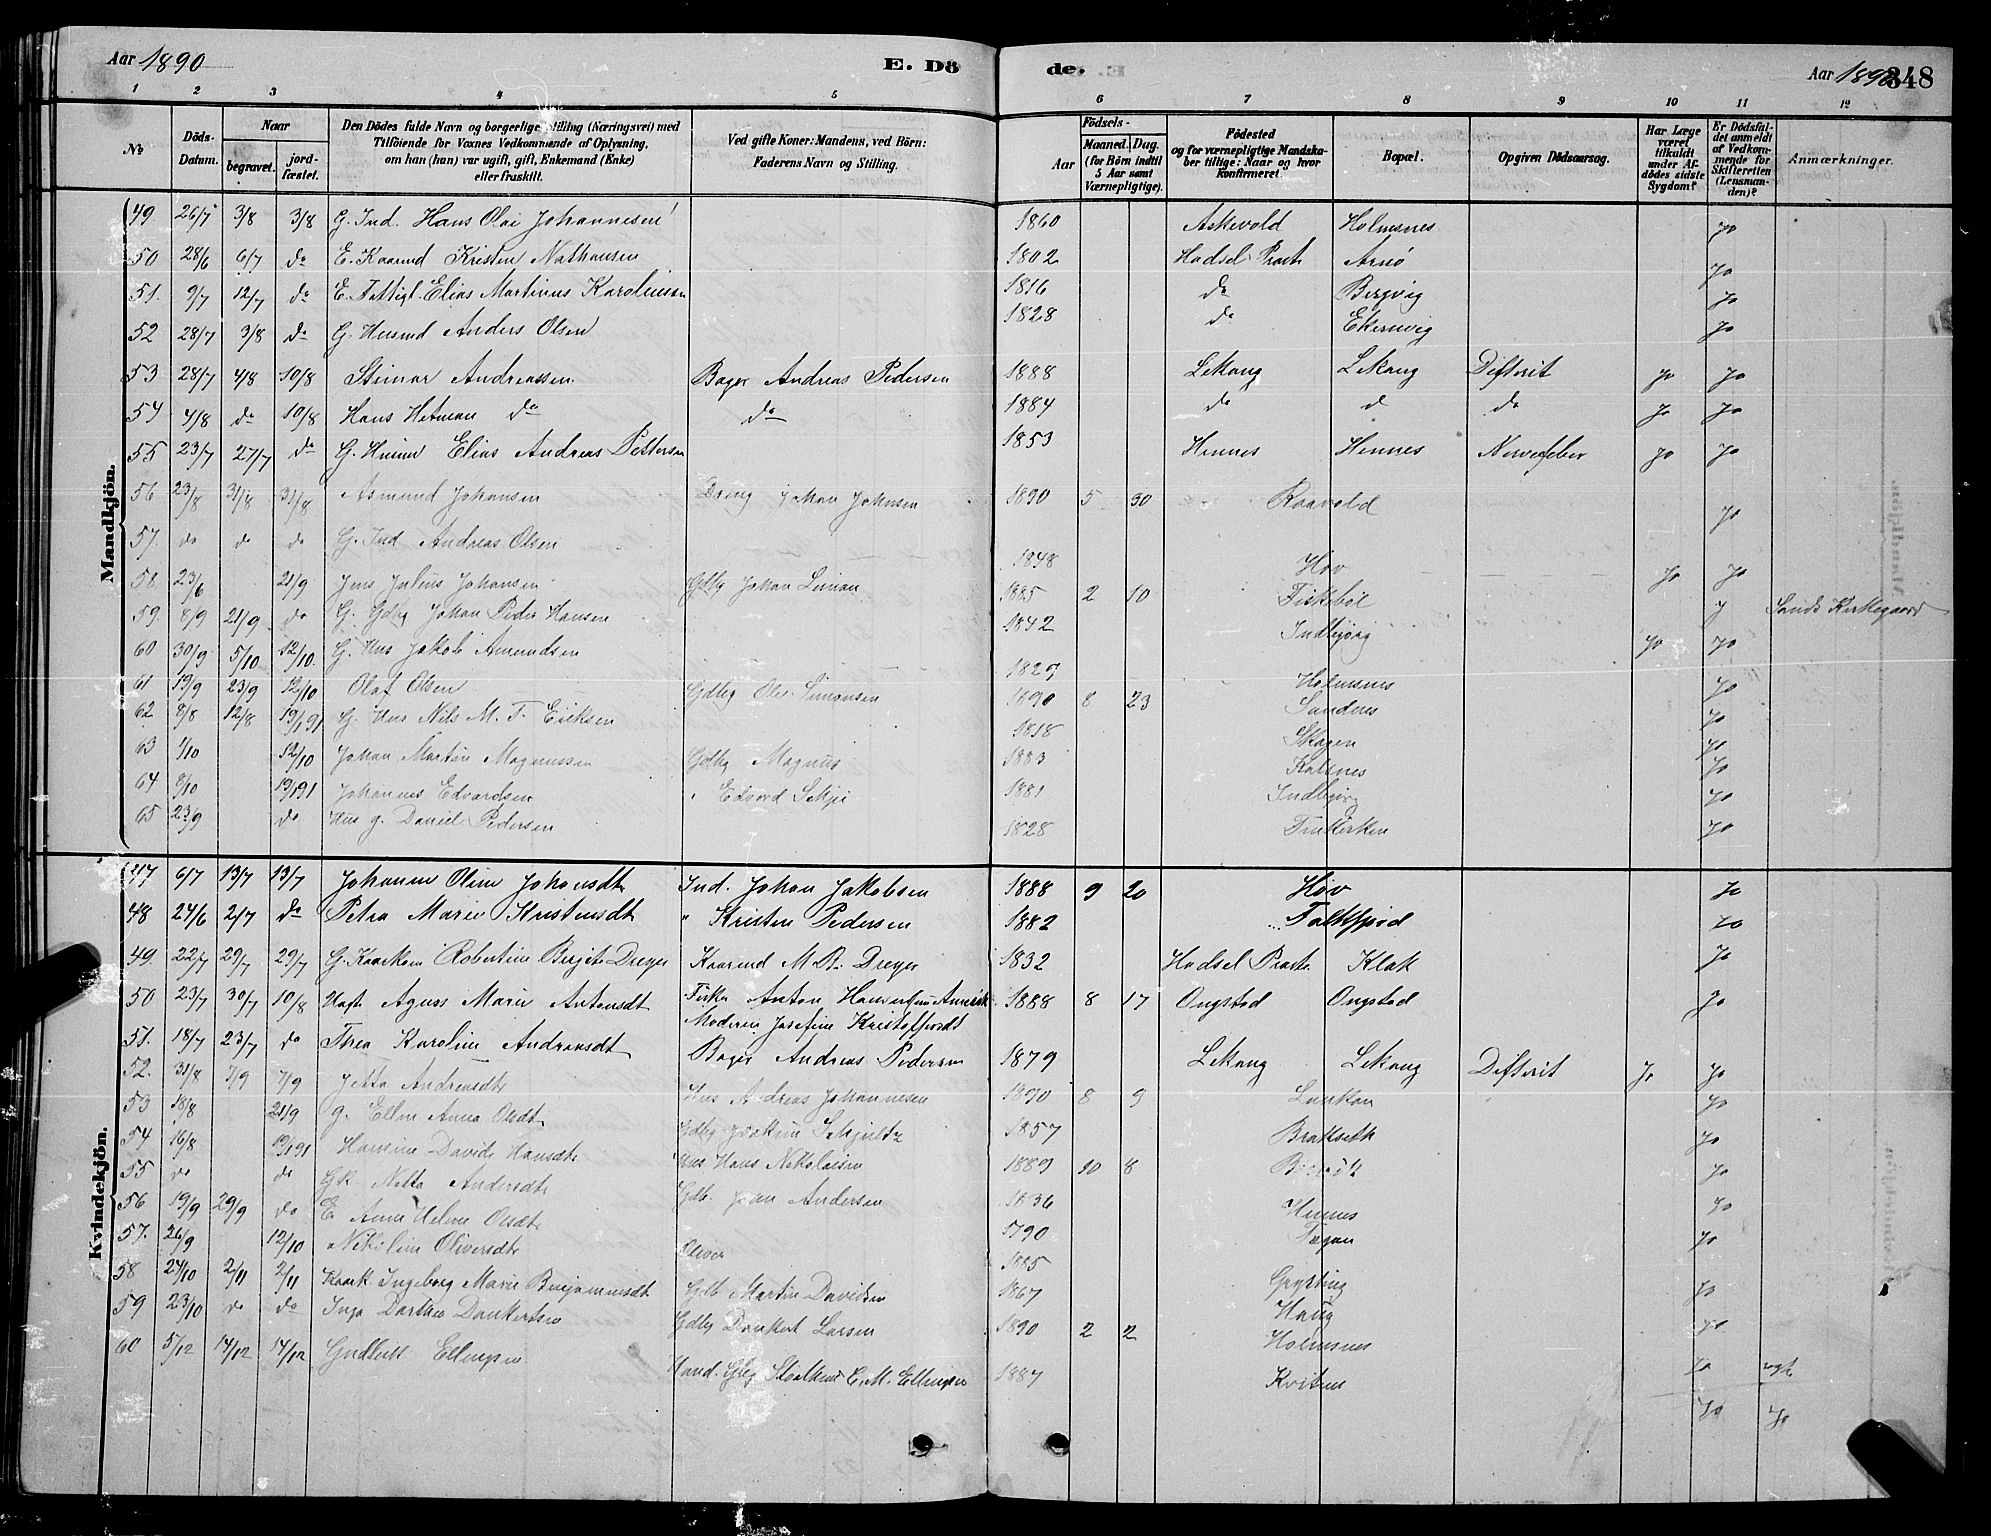 Aar 1890 E. Döde. Aar 1890 348
1 2 3 4 5 6 7 8 9 10 11 12
No Döds-Datum. Naar begravet. jordfæstet. Den Dödes fulde Navn og borgerlige Stilling (Næringsvei) med Tilföiende for Voxnes Vedkommende af Oplysning, om han (hun) var ugift, gift, Enkemand (Enke) eller fraskilt. Ved gifte Koner: Mandens, ved Börn: Faderens Navn og Stilling. Födsels- Aar Maaned. Dag. (for Börn indtil 5 Aar samt Værnepligtige). Födested og for værnepligtige Mandskaber tillige: Naar og hvor konfirmeret. Bopæl. Opgiven Dödsaarsag. Har Læge været tilkaldt under Afdödes sidste Sygdom? Er Dödsfaldet anmeldt af Vedkommende for Skifteretten (Lensmanden)? Anmærkninger.
Mandkjön.
49. 26/7 3/8 3/8 G. Ind. Hans Olai Johannesen 1860 Askevold Holmsnes Jo
50 28/6 6/7 do E. Kaarmd Kristen Nathansen 1802 Hadsel Præst. Arnö Jo
51. 9/7 12/7 do E. Fattigl. Elias Martinus Karoliusen 1816 do Bergvig Jo
52 28/7 3/8 do G. Husmd Anders Olsen 1828 do Jo
53 28/7 4/8 10/8 Steinar Andreassen Bager Andreas Pedersen 1888 Lekang Lekang Difterit Jo Jo
54 4/8 do 10/8 Hans Hetman do do 1884 do d do Jo Jo
55 23/7 27/7 do G. Elias Andreas Pettersen 1853 Hennes Hennes Nervefeber Jo Jo
56 23/8 31/8 31/8 Asmund Johansen Dreng Johan Johnsen 1890 5 30 Kaavold Jo
57. do do do G. Ind Andreas Olsen 1848 Hov Jo Jo
58. 23/6 21/9 Jens Julius Johansen Gdbg Johan 1885 2 10 Fiskeböl J Sands Kirkegaard
59. 8/9 21/9 do G. Gdbg Johan Peder Hansen 1842 Indbjörg Jo Jo
60 30/9 5/10 12/10. G. Hus Jakob Amundsen 1829 Holmsnes Jo
61 19/9 23/9 12/10 Olaf Olsen Gdbg Ole Simonsen 1890 8 23 Sandnes Jo
62 8/8 12/8 19/1 91 G. Hus Nils M. T. Eriksen 1818 Skagen Jo
63 1/10 12/10 Johan Martin Magnussen Gdbg Magnus 1883 Kaltnes Jo
64 8/10 19/1 91 Johannes Edvardsen Edvard 1881 Indbjörg Jo
65 23/9 do Hus g. Daniel Pedersen 1828 Jo
Kvindekjön.
47 6/7 13/7 13/7 Johanne Oline Johansdt Ind. Johan Jakobsen 1888 9 20 Hov Jo
48 24/6 2/7 do Petra Marie Kristensdt " Kristen Pedersen 1882 Falkfjord Jo
49. 22/7 29/7 29/7 G. Kaarkone Robertine Birgite Dreyer Kaarmd M. B. Dreyer 1832 Hadsel Præst. Klak Jo
50 23/7 30/7 10/8 Uægte Agnes Marie Antonsdt Fisker Anton Amerik. 1888 8 17 Ongstad Ongstad Jo
Moderen Josefine Kristoffersdt
51. 18/7 23/7 do Thea Karoline Andreasdt Bager Andreas Pedersen 1879 Lekang Lekang Difterit Jo Jo
52. 31/8 7/9 7/9 Jetta Andreasdt Hus Andreas Johannesen 1890 8 9 Lunkan Jo
53 18/8 21/9 g. Ellen Anna Olsdt Gdbg Joakim 1857 Bratseth Jo
54 16/8 19/1 91 Hansine Davida Hansdt Hus Hans Nikolaisen 1889 10 8 Jo
55 do do Gk Netta Andersdt Gdb. Andersen 1836 Hennes Jo
56 19/9 29/9 do E. Anne Helene Olsdt 1790 Jo
57. 26/9 12/10 Nikoline Oliversdt Oliver 1885 Grytting Jo
58 24/10 2/11 2/11 Kaark Ingeborg Marie Benjaminsdt Gdb Martin Davidsen 1867 Haug Jo
59 23/10 do do Inga Dorthea Dankertsen Gdbg Dankert Larsen 1890 2 2 Holmsnes Jo
60 5/12 14/12 14/12 Ellingsen Hand. Gbg C. M. Ellingsen 1887 Kvitnes Jo Jo